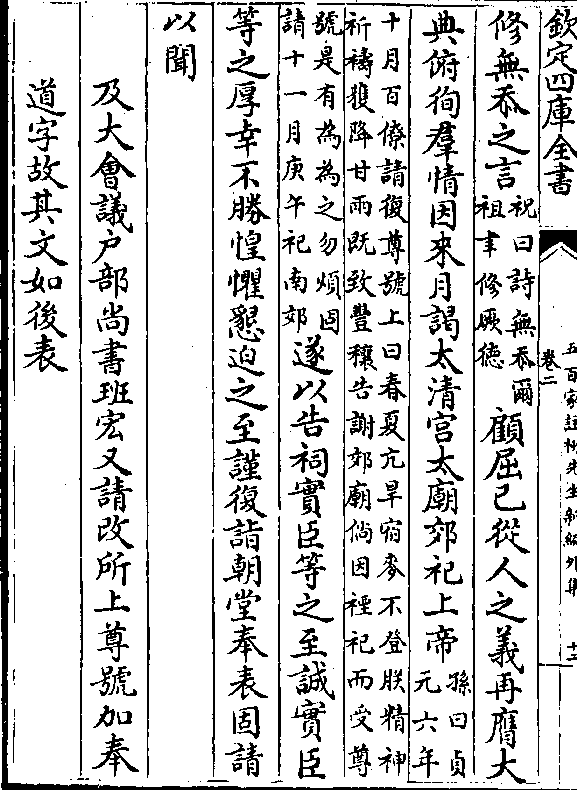 欽定四庫全書
五百家註柳先生新編外集
卷二
十二
修無忝之言祝曰詩無忝爾祖聿修厥德顧屈己從人之義再膺大
典俯徇羣情因來月謁太清宮太廟郊祀上帝孫曰貞元六年
十月百僚請復尊號上曰春夏亢旱宿麥不登朕精神
祈禱獲降甘雨既致豐穰告謝郊廟倘因禋祀而受尊
號是有為為之勿煩因請十一月庚午祀南郊遂以告祠實臣等之至誠實臣
等之厚幸不勝惶懼懇迫之至謹復詣朝堂奉表固請
以聞
及大會議户部尚書班宏又請改所上尊號加奉
道字故其文如後表